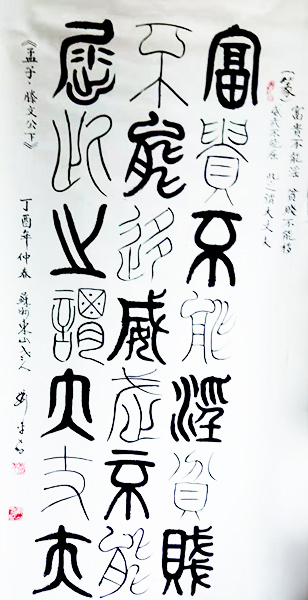 (篆) 富貴不能淫 貧賤不能移
威武不能屈 此之謂大丈夫
富貴不能淫貧賤
不能迻威武不能
屈此之謂大丈夫
丁酉年仲春 蘇州東山
《孟子·滕文公下》